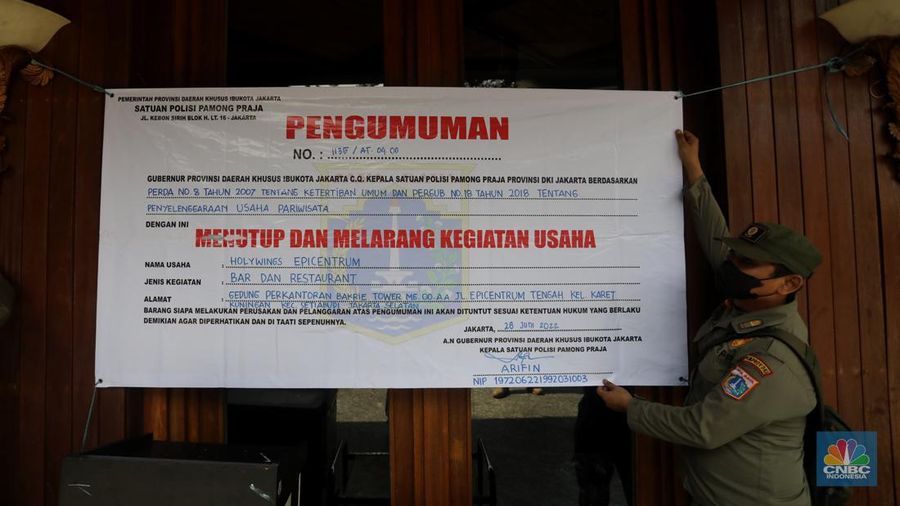 PEMERINTAH PROVINSI DAERAH KHUSUS IBUKOTA JAKARTA
SATUAN POLISI PAMONG PRAJA
JL. KEBON SIRIH BLOK H. LT. 16 - JAKARTA
PENGUMUMAN
NO. : 1135 / AT. 04.00
GUBERNUR PROVINSI DAERAH KHUSUS IBUKOTA JAKARTA C.Q. KEPALA SATUAN POLISI PAMONG PRAJA PROVINSI DKI JAKARTA BERDASARKAN
PERDA NO. 8 TAHUN 2007 TENTANG KETERTIBAN UMUM DAN PERGUB NO. 18 TAHUN 2018 TENTANG
PENYELENGGARAAN USAHA PARIWISATA
DENGAN INI
MENUTUP DAN MELARANG KEGIATAN USAHA
NAMA USAHA : HOLYWINGS EPICENTRUM
JENIS KEGIATAN : BAR DAN RESTAURANT
ALAMAT : GEDUNG PERKANTORAN BAKRIE TOWER MG. 00. AA JL. EPICENTRUM TENGAH KEL. KARET
KUNINGAN KEC. SETIABUDI JAKARTA SELATAN
BARANG SIAPA MELAKUKAN PERUSAKAN DAN PELANGGARAN ATAS PENGUMUMAN INI AKAN DITUNTUT SESUAI KETENTUAN HUKUM YANG BERLAKU
DEMIKIAN AGAR DIPERHATIKAN DAN DI TAATI SEPENUHNYA.
JAKARTA, 28 JUNI 2022
A.N GUBERNUR PROVINSI DAERAH KHUSUS IBUKOTA JAKARTA
KEPALA SATUAN POLISI PAMONG PRAJA
ARIFIN
NIP 197206221992031003
CNBC
INDONESIA